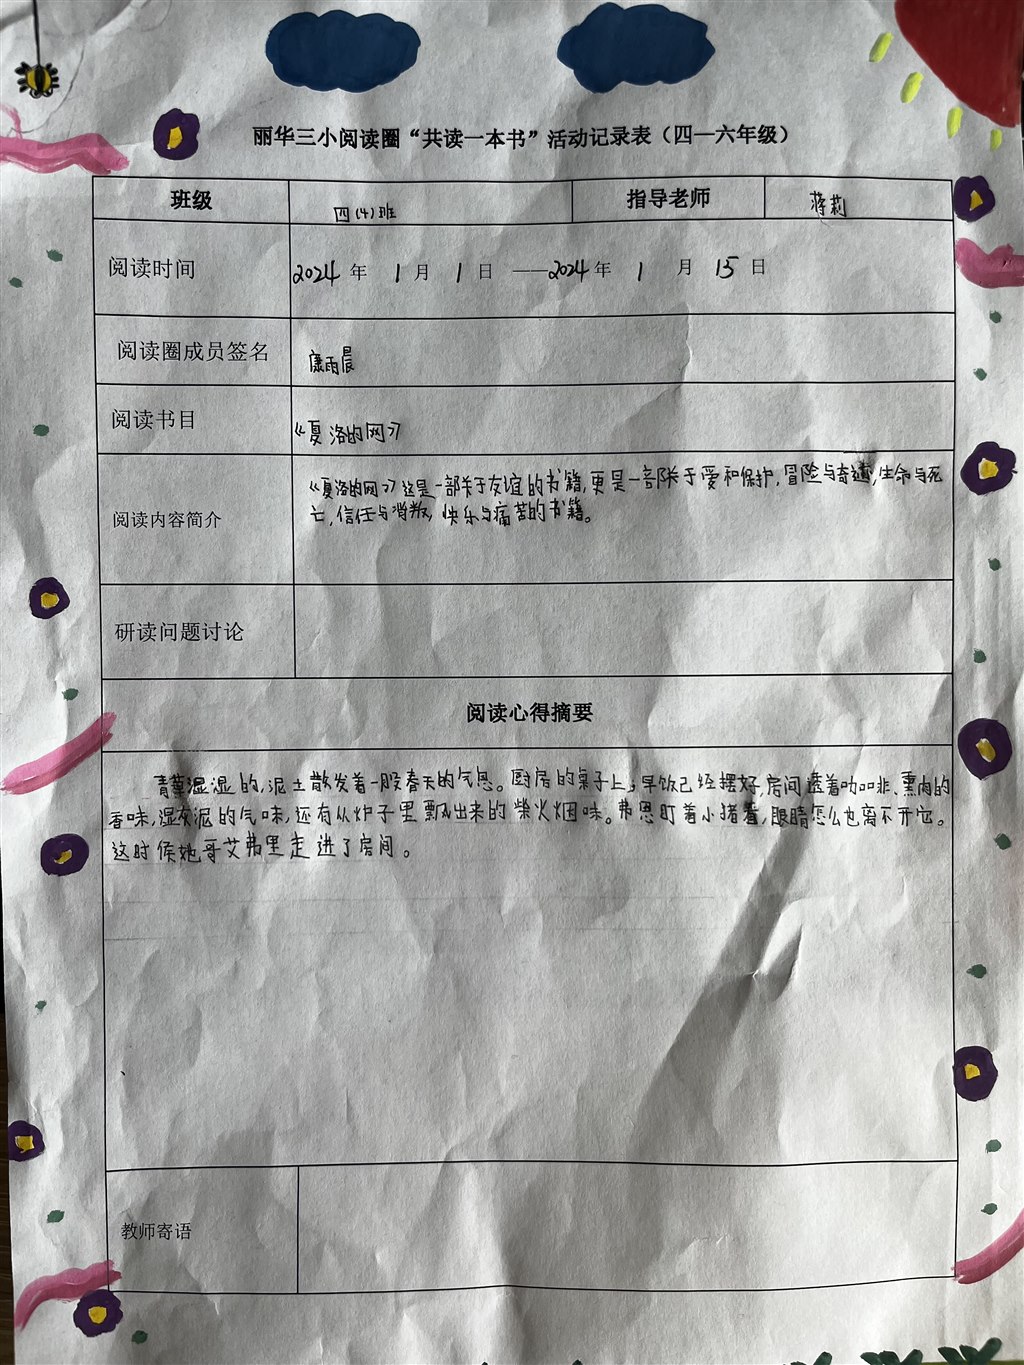 丽华三小阅读圈“共读一本书”活动记录表（四—六年级）
班级 四(4)班 指导老师 蒋莉
阅读时间 2024年 1月 1日 ——2024年 1月 15日
阅读圈成员签名 康雨晨
阅读书目 《夏洛的网》
《夏洛的网》这是一部关于友谊的书籍,更是一部关于爱和保护,冒险与奇迹,生命与死
阅读内容简介 亡,信任与背叛,快乐与痛苦的书籍。
研读问题讨论
阅读心得摘要
青草湿湿的,泥土散发着一股春天的气息。厨房的桌子上,早饭已经摆好,房间透着咖啡、熏肉的
香味,湿灰泥的气味,还有从炉子里飘出来的柴火烟味。弗恩盯着小猪看,眼睛怎么也离不开它。
这时候她哥艾弗里走进了房间。
教师寄语